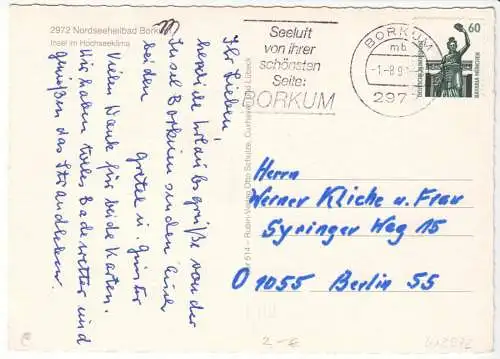 2972 Nordseeheilbad Borkum
Insel im Hochseeklima
Ihr Lieben,
herzliche Urlaubsgrüße von der
Insel Borkum senden Euch
beiden
Gretel u. Günter
Vielen Dank für beide Karten.
Wir haben tolles Badewetter und
genießen das Strandleben.
614 - Rubin-Verlag Otto Schulze, Cuxhaven und Lübeck
Seeluft
von ihrer
schönsten
Seite:
BORKUM
BORKUM
mb
-1.-8.9
297
60
DEUTSCHE BUNDESPOST
BAVARIA MÜNCHEN
Herrn
Werner Kliche u. Frau
Syringer Weg 15
O 1055 Berlin 55
2 -€